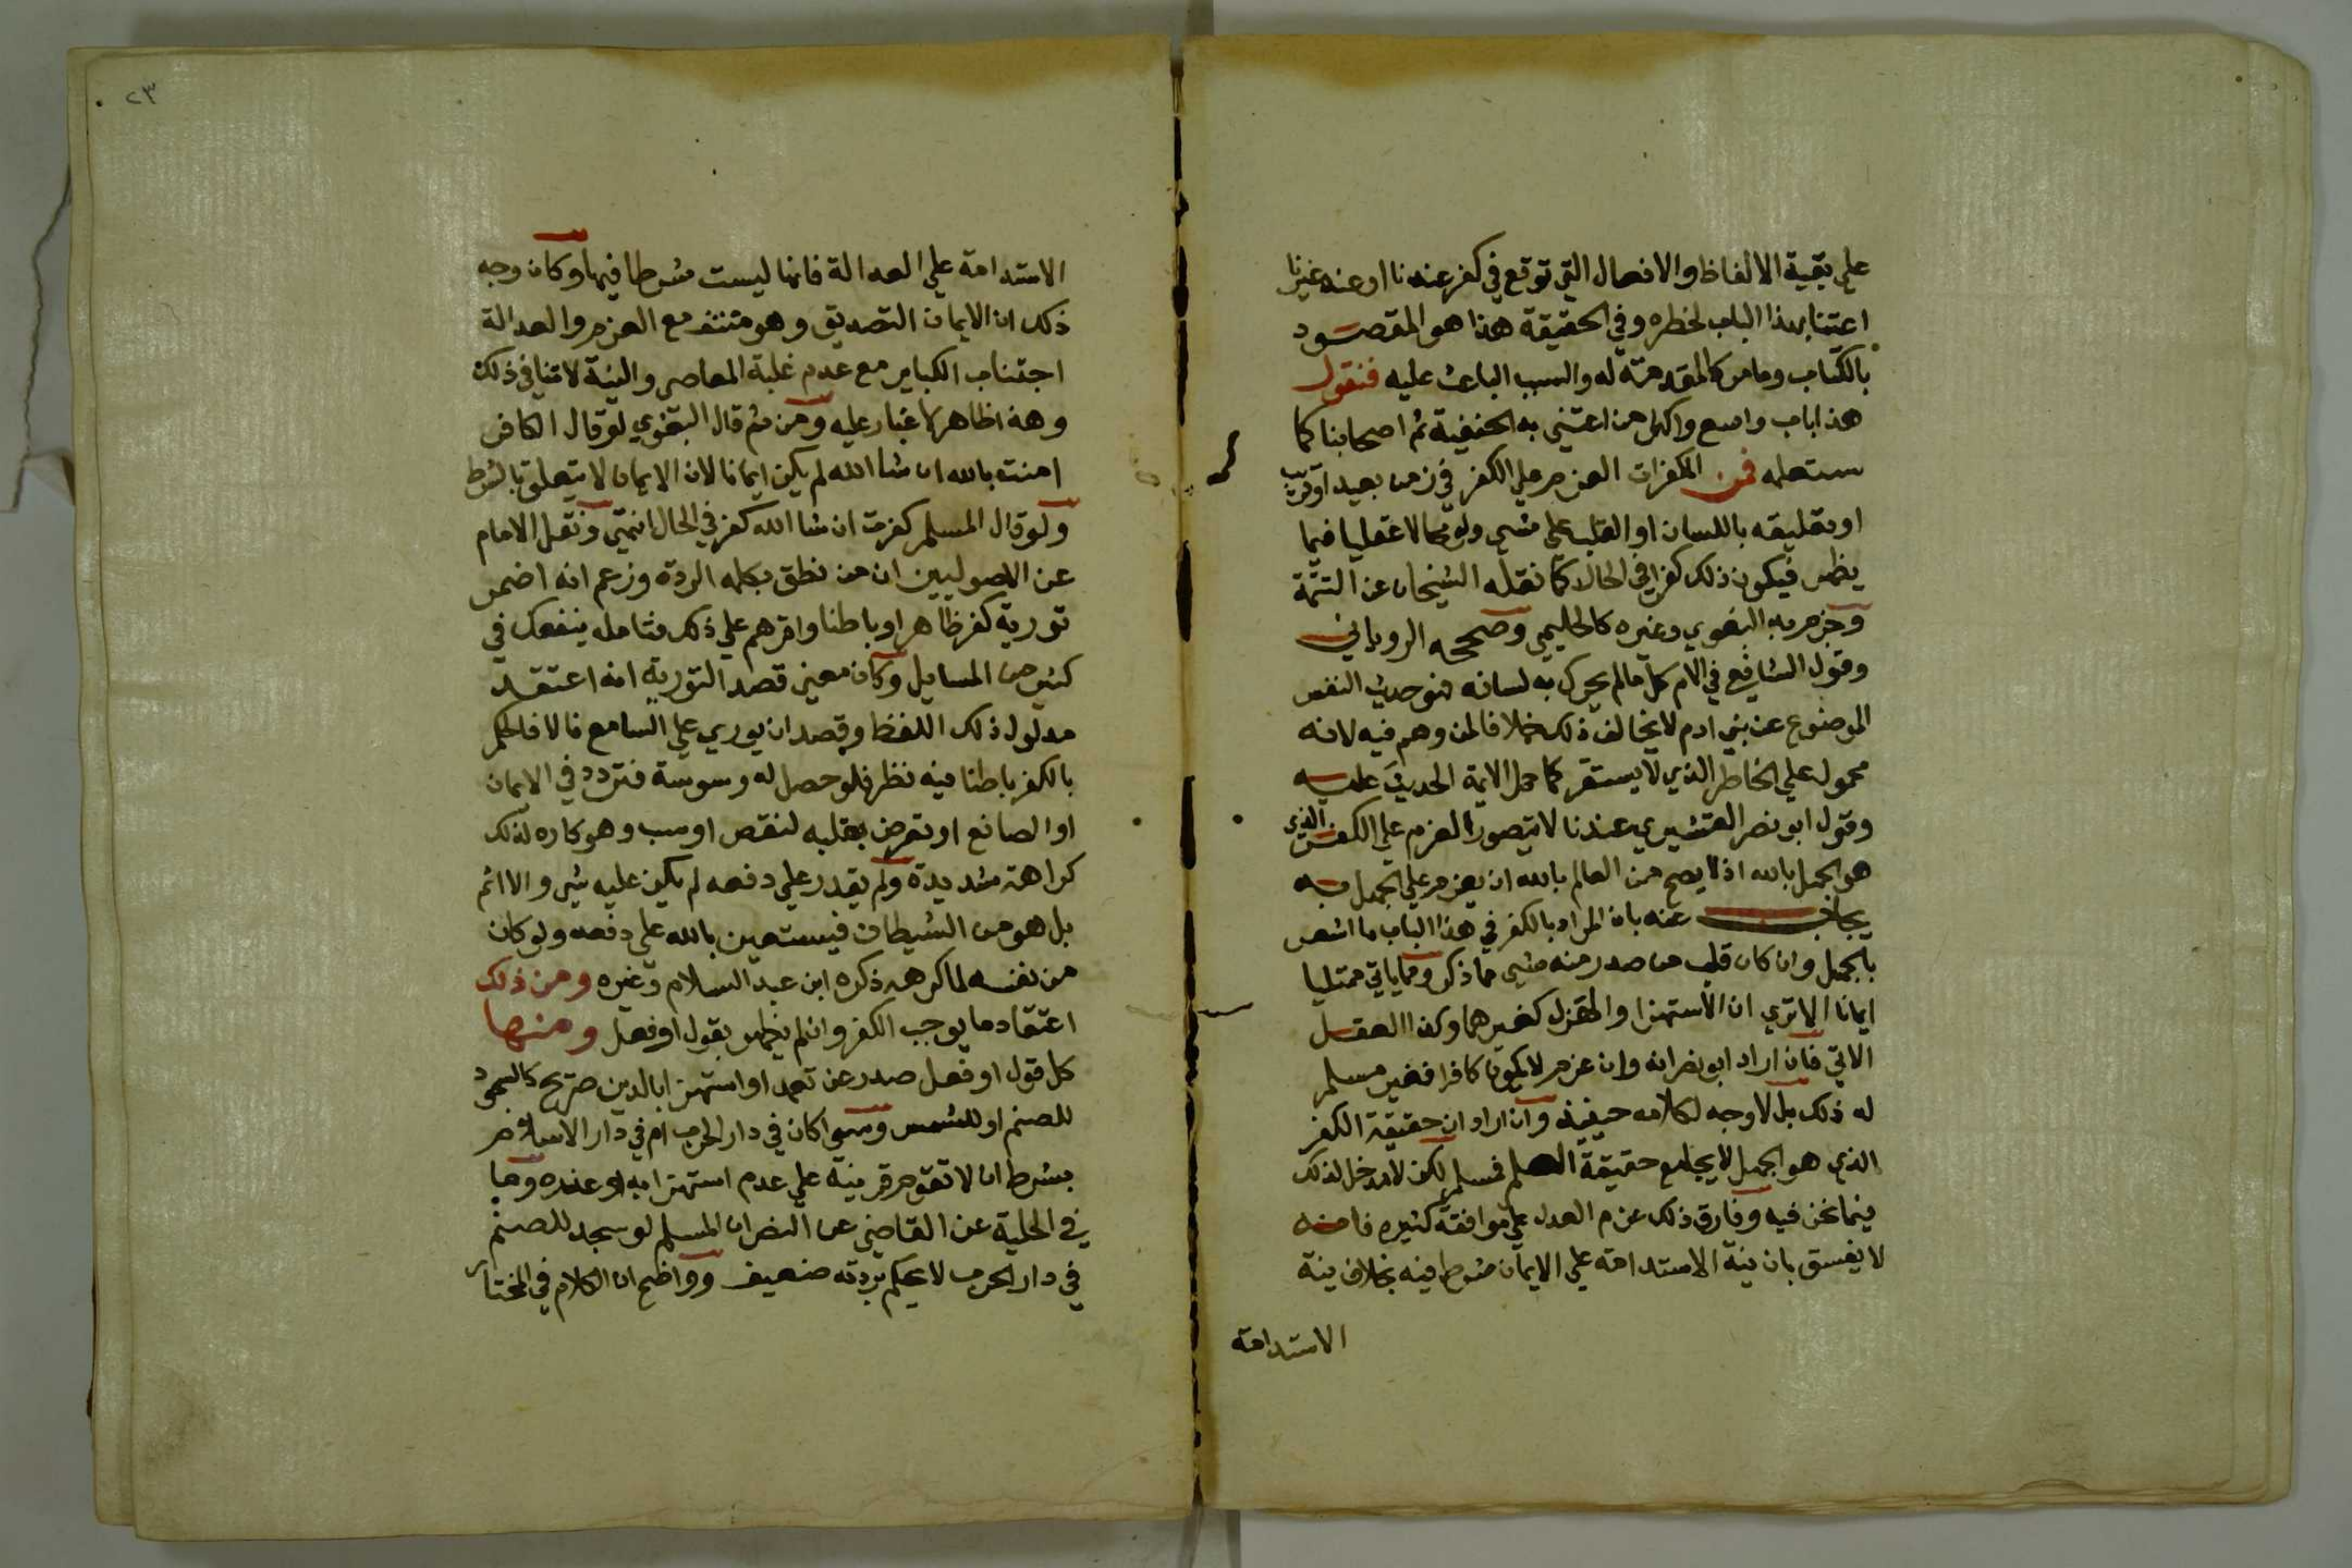 علي بقية الالفاظ والافعال التي توقع في كفر عندنا او عند غيرنا
اعتنا بهذا الباب لخطره وفي الحقيقة هذا هو المقصود
بالكتاب وما مر كالمقدمة له والسبب الباعث عليه فنقول
هذا باب واسع واكثر من اعتني به الحنفية ثم اصحابنا كما
ستعلمه فمن المكفرات العزم علي الكفر في زمن بعيد او قريب
او تعليقه باللسان او القلب علي شي ولو محالا عقليا فيما
يظهر فيكون ذلك كفرا في الحال كما نقله الشيخان عن التتمة
وجزم به البغوي وغيره كالحليمي وصححه الروياني
وقول الشافعي في الام كل ما لم يحرك به لسانه فهو حديث النفس
الموضوع عن بني ادم لا يخالف ذلك خلافا لمن وهم فيه لانه
محمول علي الخاطر الذي لا يستقر كما حمل الايمة الحديث عليه
وقول ابو نصر القشيري عندنا لا يتصور العزم علي الكفر الذي
هو الجهل بالله اذ لا يصح من العالم بالله ان يعزم علي الجهل به
يجاب عنه بان المراد بالكفر في هذا الباب ما اشعر
بالجهل وان كان قلب من صدر منه شي مما ذكر ومما ياتي ممتليا
ايمانا الا تري ان الاستهزا والهزل كغيرهما وكذا الفعل
الاتي فان اراد ابو نصر انه وان عزم لا يكون كافرا فغير مسلم
له ذلك بل لا وجه لكلامه حينئذ وان اراد ان حقيقة الكفر
الذي هو الجهل لا يجامع حقيقة العلم فمسلم لكن لا مدخل لذلك
فيما نحن فيه وفارق ذلك عزم العدل علي موافقة كبيرة فانه
لا يفسق بان نية الاستدامة علي الايمان شرط فيه بخلاف نية
الاستدامة
٢٣
الاستدامة علي العدالة فانها ليست شرطا فيها وكان وجه
ذلك ان الايمان التصديق وهو منتف مع العزم والعدالة
اجتناب الكباير مع عدم غلبة المعاصي والنية لا تنافي ذلك
وهذا ظاهر لا غبار عليه ومن ثم قال البغوي لو قال الكافر
امنت بالله ان شا الله لم يكن ايمانا لان الايمان لا يتعلق بالشرط
ولو قال المسلم كفرت ان شا الله كفر في الحال انتهي ونقل الامام
عن الاصوليين ان من نطق بكلمه الردة وزعم انه اضمر
تورية كفر ظاهرا وباطنا واقرهم علي ذلك فتامله ينفعك في
كثير من المسايل وكان معني قصد التورية انه اعتقد
مدلول ذلك اللفظ وقصد ان يوري علي السامع والا فالحكم
بالكفر باطنا فيه نظر فلو حصل له وسوسة فتردد في الايمان
او الصانع او تعرض بقلبه لنقص او سب وهو كاره لذلك
كراهة شديدة ولم يقدر علي دفعه لم يكن عليه شي ولا اثم
بل هو من الشيطان فيستعين بالله علي دفعه ولو كان
من نفسه لما كرهه ذكره ابن عبد السلام وغيره ومن ذلك
اعتقاد ما يوجب الكفر وان لم يظهر بقول او فعل ومنها
كل قول او فعل صدر عن تعمد او استهزا بالدين صريح كالسجود
للصنم او للشمس وسوا كان في دار الحرب ام في دار الاسلام
بشرط ان لا تقوم قرينة علي عدم استهزايه او عذره وما
في الحلية عن القاضي عن النص ان المسلم لو سجد للصنم
في دار الحرب لا يحكم بردته ضعيف وواضح ان الكلام في المختار